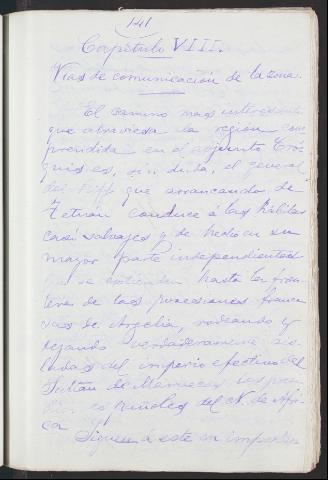 141
Capítulo VIII.
Vias de comunicación de la zona.
El camino mas interesante
que atraviesa la región com
prendida en el adjunto Cró
quis es, sin duda, el general
del Riff que arrancando de
Tetuán conduce á las kábilas
casi salvajes y de hecho en su
mayor parte independientes
que se extienden hasta la fron
tera de las posesiones france
sas de Argelia, rodeando y
dejando verdaderamente ais
ladas del imperio efectivo del
Sultán de Marruecos, las pose
siones españolas del N. de Áfri
ca
Siguen á este en importan